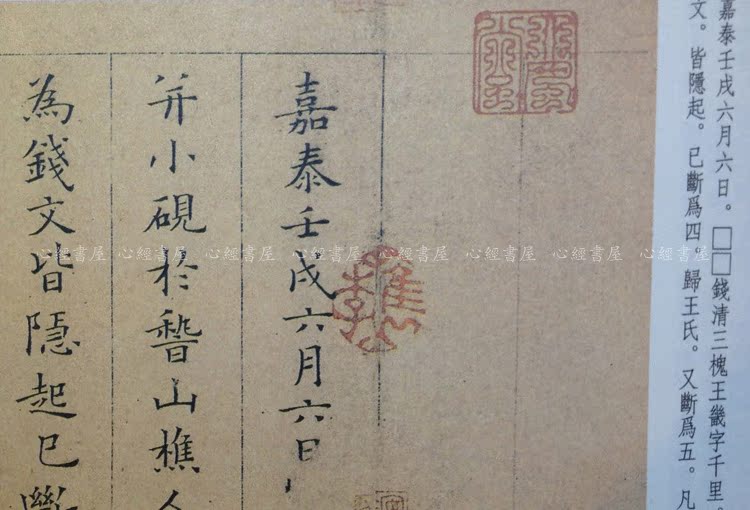 嘉泰壬戌六月六日。□□錢清三槐王畿字千里。
文。皆隱起。已斷爲四。歸王氏。又斷爲五。凡
嘉泰壬戌六月六日
并小硯於稽山樵人
為錢文皆隱起已斷
心經書屋 心經書屋 心經書屋 心經書屋 心經書屋 心經書屋 心經書屋